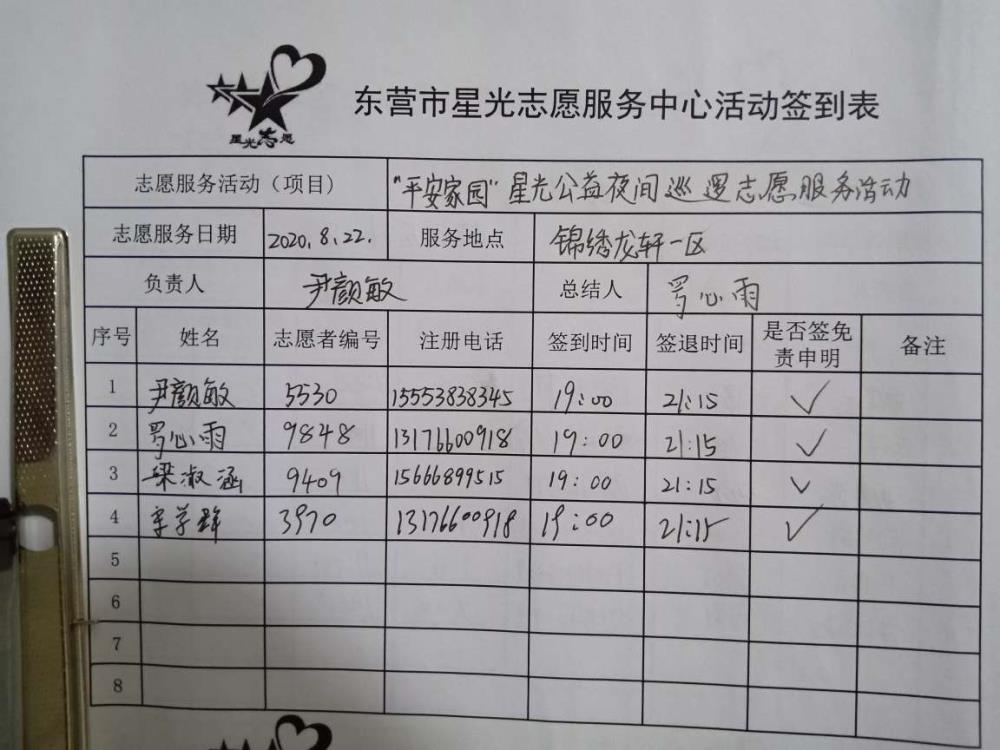 星光志愿
东营市星光志愿服务中心活动签到表
志愿服务活动（项目） "平安家园"星光公益夜间巡逻志愿服务活动
志愿服务日期 2020.8.22. 服务地点 锦绣龙轩一区
负责人 尹颜敏 总结人 罗心雨
序号 姓名 志愿者编号 注册电话 签到时间 签退时间 是否签免责申明 备注
1 尹颜敏 5530 15553838345 19:00 21:15 ✓
2 罗心雨 9848 13176600918 19:00 21:15 ✓
3 梁淑涵 9409 15666899515 19:00 21:15 ✓
4 3970 13176600918 19:00 21:15 ✓
5
6
7
8